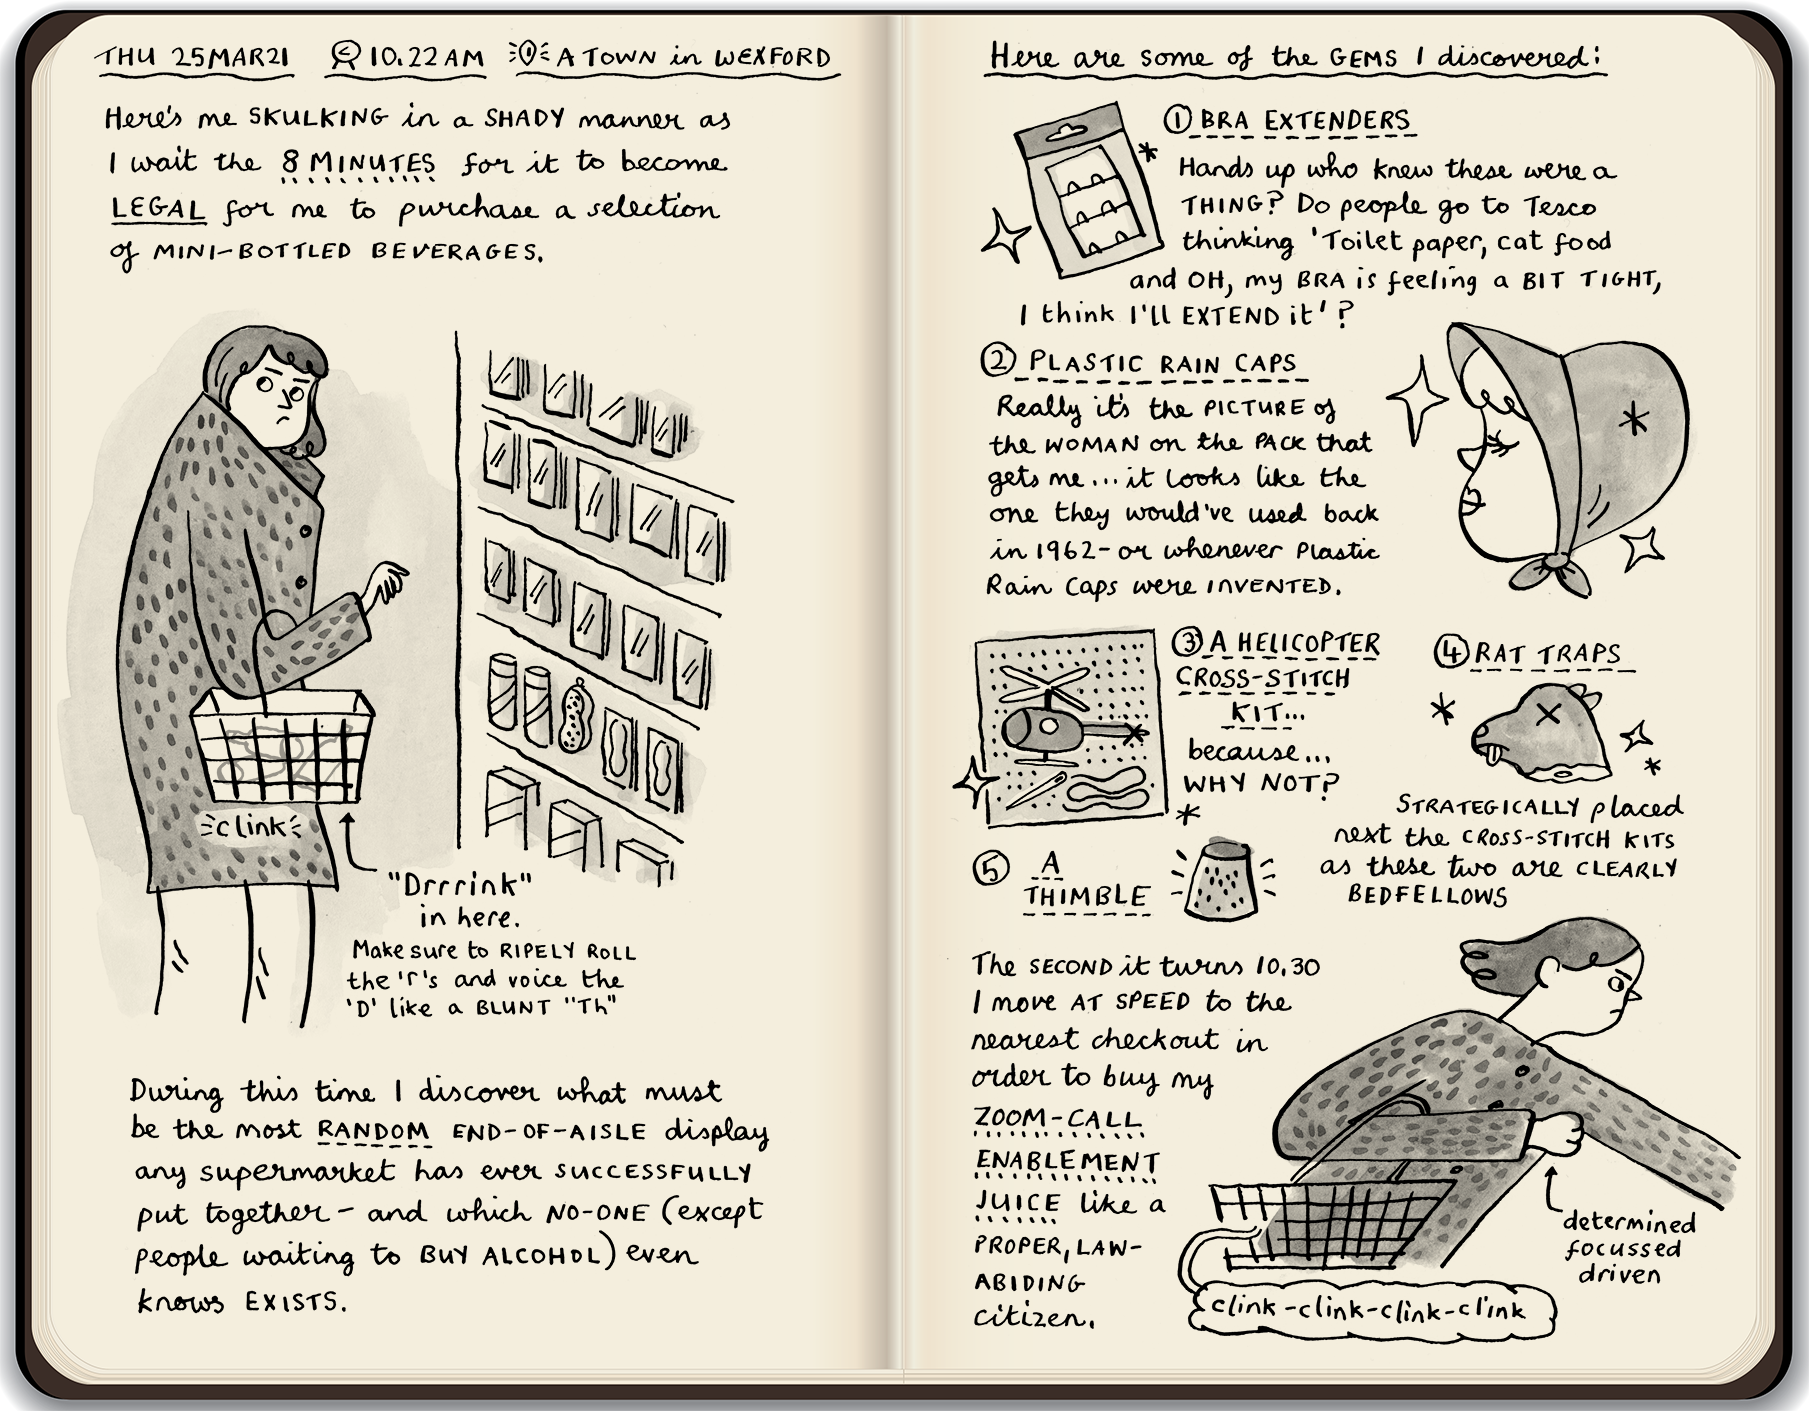 THU 25MAR21 10.22AM A TOWN in WEXFORD
Here's me SKULKING in a SHADY manner as
I wait the 8 MINUTES for it to become
LEGAL for me to purchase a selection
of MINI-BOTTLED BEVERAGES.
clink
"Drrrink"
in here.
Make sure to RIPELY ROLL
the 'r's and voice the
'D' like a BLUNT "Th"
During this time I discover what must
be the most RANDOM END-OF-AISLE display
any supermarket has ever SUCCESSFULLY
put together - and which NO-ONE (except
people waiting to BUY ALCOHOL) even
knows EXISTS.
Here are some of the GEMS I discovered:
① BRA EXTENDERS
Hands up who knew these were a
THING? Do people go to Tesco
thinking 'Toilet paper, cat food
and OH, my BRA is feeling a BIT TIGHT,
I think I'll EXTEND it'?
② PLASTIC RAIN CAPS
Really it's the PICTURE of
the WOMAN on the PACK that
gets me... it looks like the
one they would've used back
in 1962 - or whenever Plastic
Rain Caps were INVENTED.
③ A HELICOPTER
CROSS-STITCH
KIT...
because...
WHY NOT?
④ RAT TRAPS
STRATEGICALLY placed
next the CROSS-STITCH KITS
as these two are CLEARLY
BEDFELLOWS
⑤ A
THIMBLE
The SECOND it turns 10.30
I move AT SPEED to the
nearest checkout in
order to buy my
ZOOM-CALL
ENABLEMENT
JUICE like a
PROPER, LAW-
ABIDING
citizen.
determined
focussed
driven
clink-clink-clink-clink